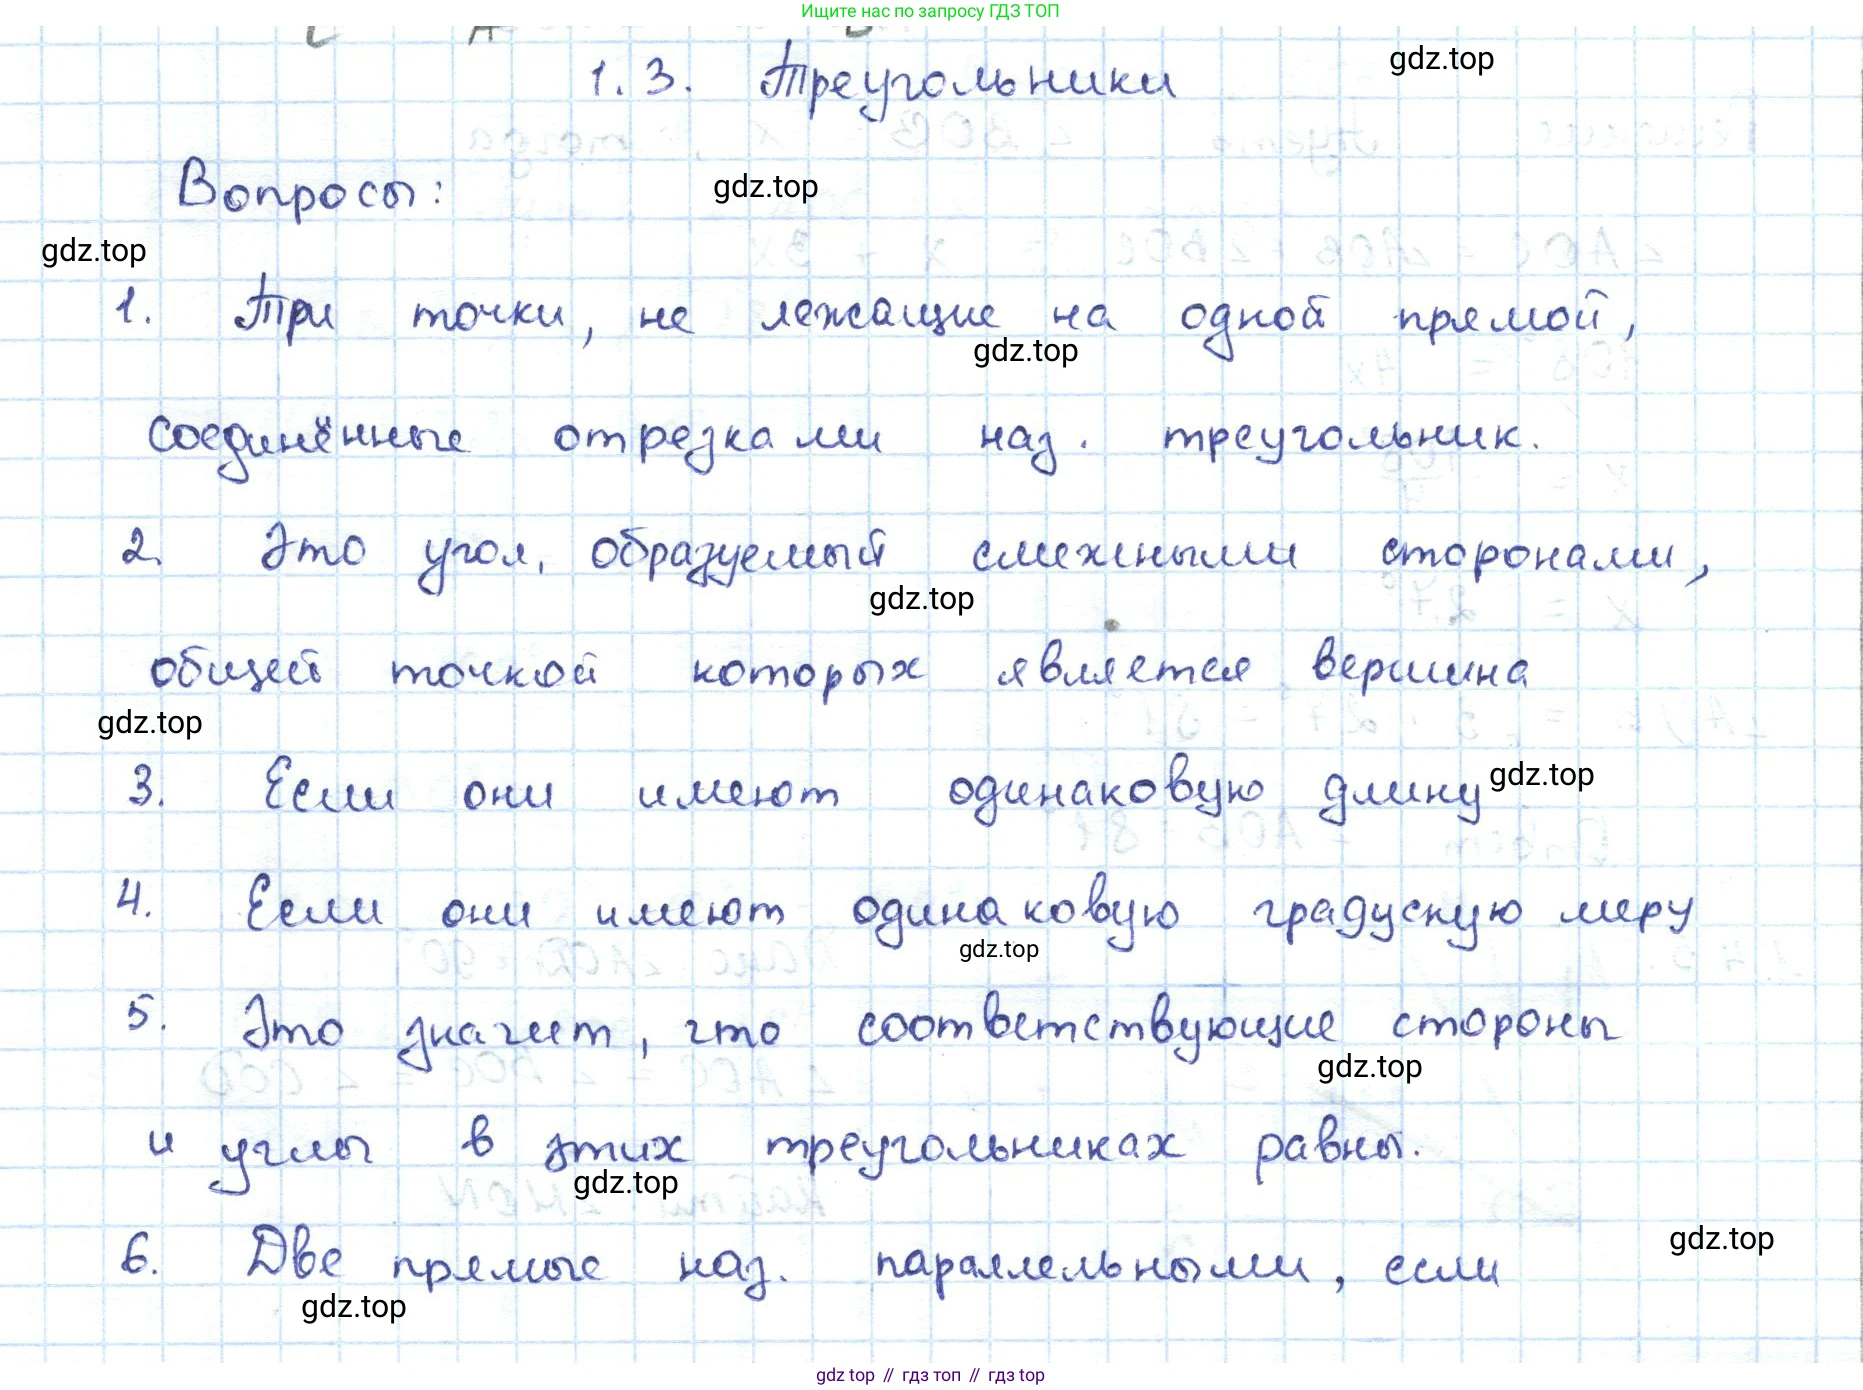 Ищите нас по запросу ГДЗ ТОП
1.3. Треугольники
gdz.top
Вопросы:
gdz.top
gdz.top
1. Три точки, не лежащие на одной прямой,
gdz.top
соединённые отрезками наз. треугольник.
2. Это угол, образуемый смежными сторонами,
gdz.top
общей точкой которых является вершина
gdz.top
3. Если они имеют одинаковую длину
gdz.top
4. Если они имеют одинаковую градускую меру
gdz.top
5. Это значит, что соответствующие стороны
gdz.top
и углы в этих треугольниках равны.
gdz.top
6. Две прямые наз. параллельными, если
gdz.top
gdz.top
gdz top // гдз топ // gdz top